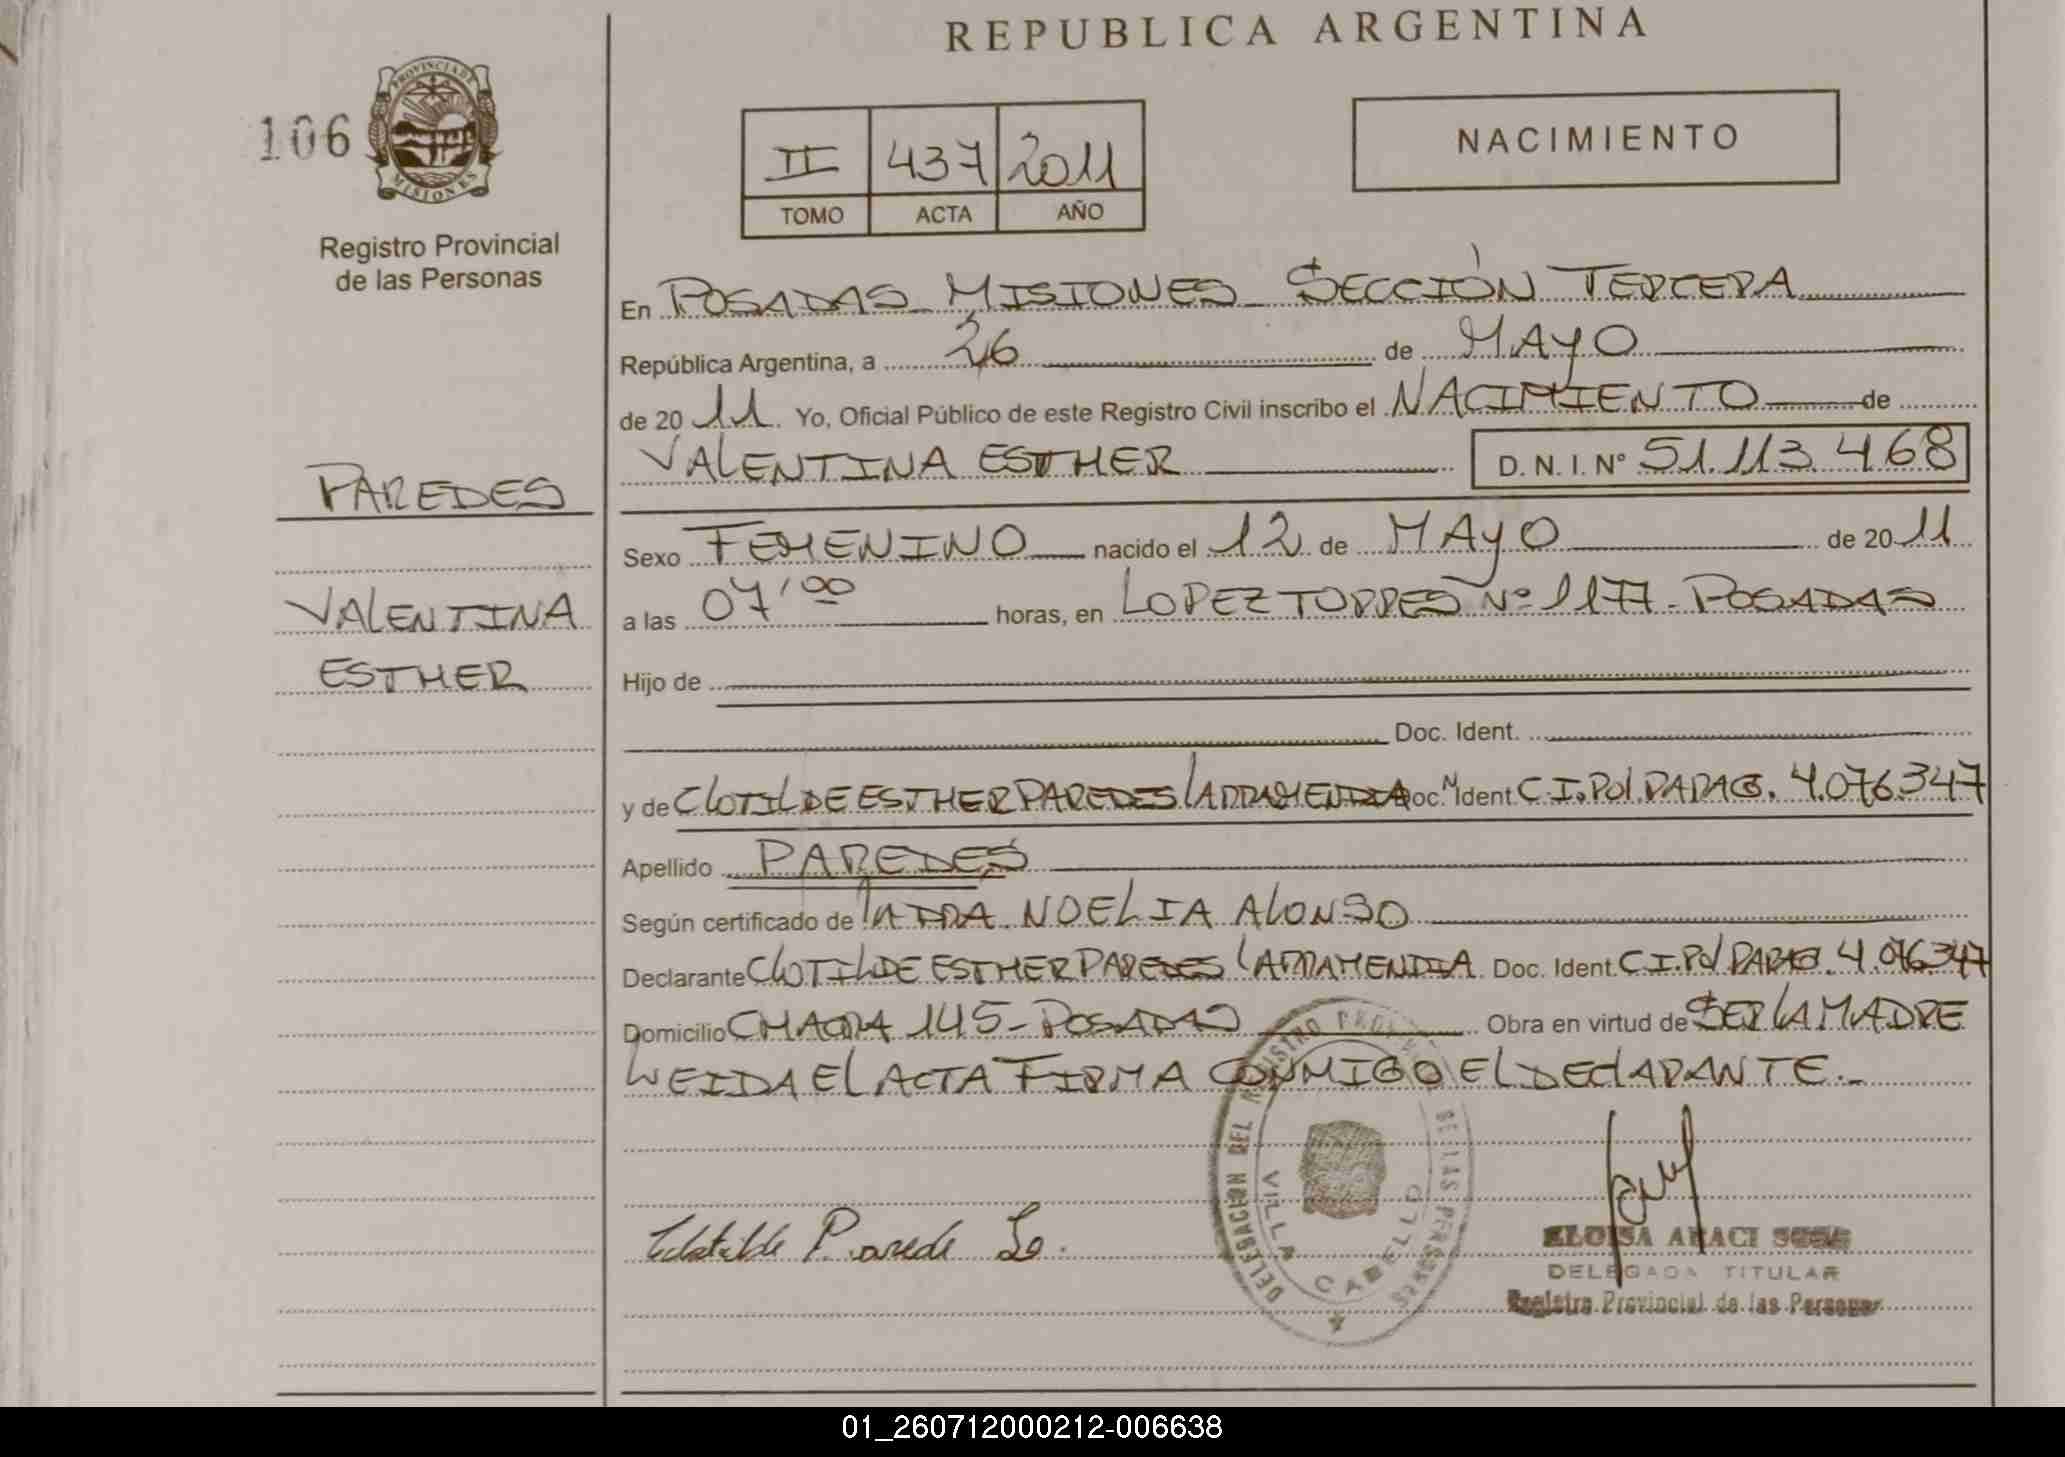 REPUBLICA ARGENTINA
106
PROVINCIA DE
MISIONES
Registro Provincial
de las Personas
II 437 2011
TOMO ACTA AÑO
NACIMIENTO
En POSADAS MISIONES - SECCIÓN TERCERA
República Argentina, a 26 de MAYO
de 20 11 Yo, Oficial Público de este Registro Civil inscribo el NACIMIENTO de
VALENTINA ESTHER D. N. I. Nº 51.113.468
PAREDES
VALENTINA
ESTHER
Sexo FEMENINO nacido el 12 de MAYO de 20 11
a las 07'00 horas, en LOPEZ TORRES Nº 1177 - POSADAS
Hijo de
Doc. Ident.
y de CLOTILDE ESTHER PAREDES LARRAMENDIA Doc. Ident C.I. Pol. PARAG. 4.076.347
Apellido PAREDES
Según certificado de LA DRA. NOELIA ALONSO
Declarante CLOTILDE ESTHER PAREDES LARRAMENDIA Doc. Ident. C.I. Pol PARAG. 4.076.347
Domicilio CHACRA 145 - POSADAS Obra en virtud de SER LA MADRE
LEIDA EL ACTA FIRMA CONMIGO EL DECLARANTE.-
DELEGACION DEL REGISTRO DE LAS PERSONAS
VILLA CABELLO
Parede
ELOISA ARACI
DELEGADA TITULAR
Registro Provincial de las Personas
01_260712000212-006638